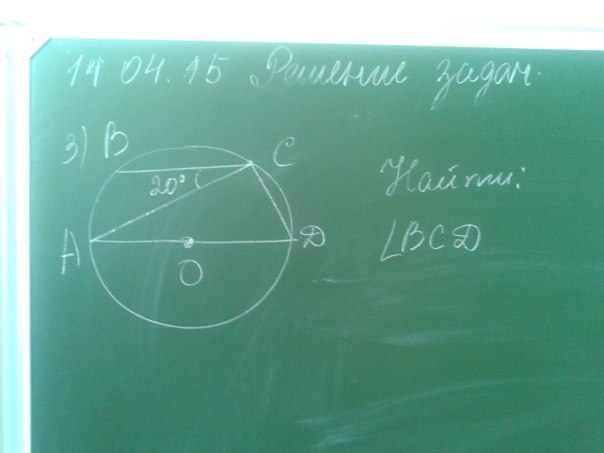 14 04.15 Решение задач.
3) B C
20°
A O D
Найти:
∠BCD